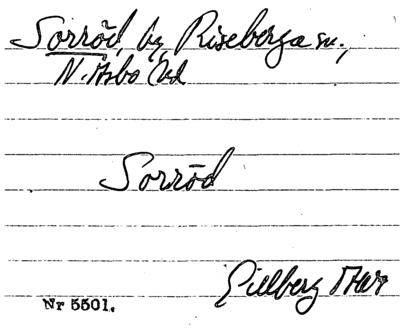 Sorröd, by, Riseberga sn.,
N. Åsbo hd
Sorröd
Gillberg
Nr 5501.